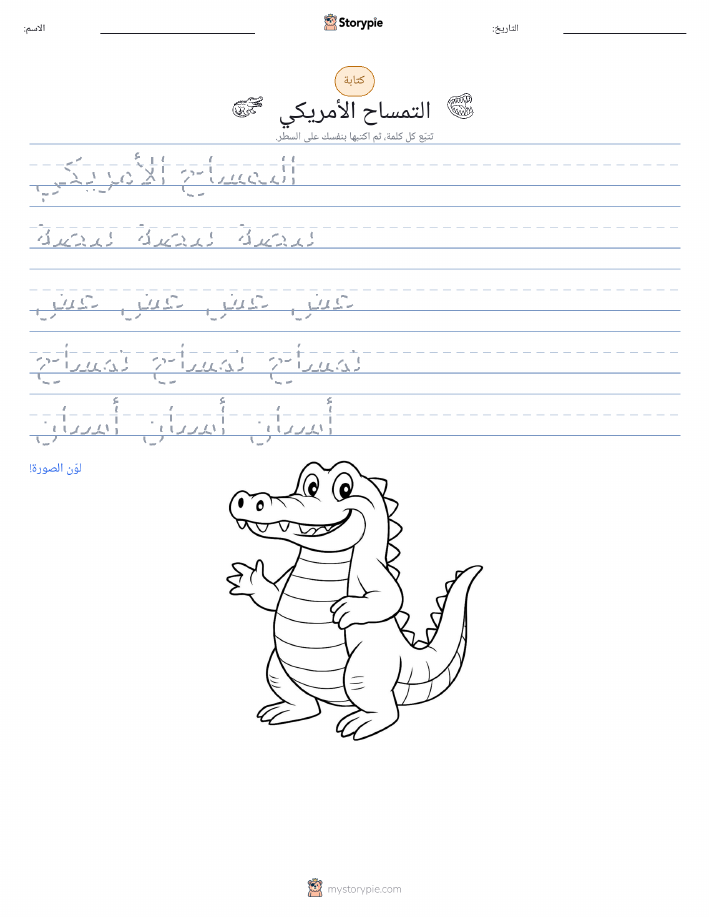 Storypie
الاسم:
التاريخ:
كتابة
التمساح الأمريكي
تتبّع كل كلمة، ثم اكتبها بنفسك على السطر.
التمساح الأمريكي
عش عش عش عش
تمساح تمساح تمساح
أسنان أسنان أسنان
لوّن الصورة!
mystorypie.com